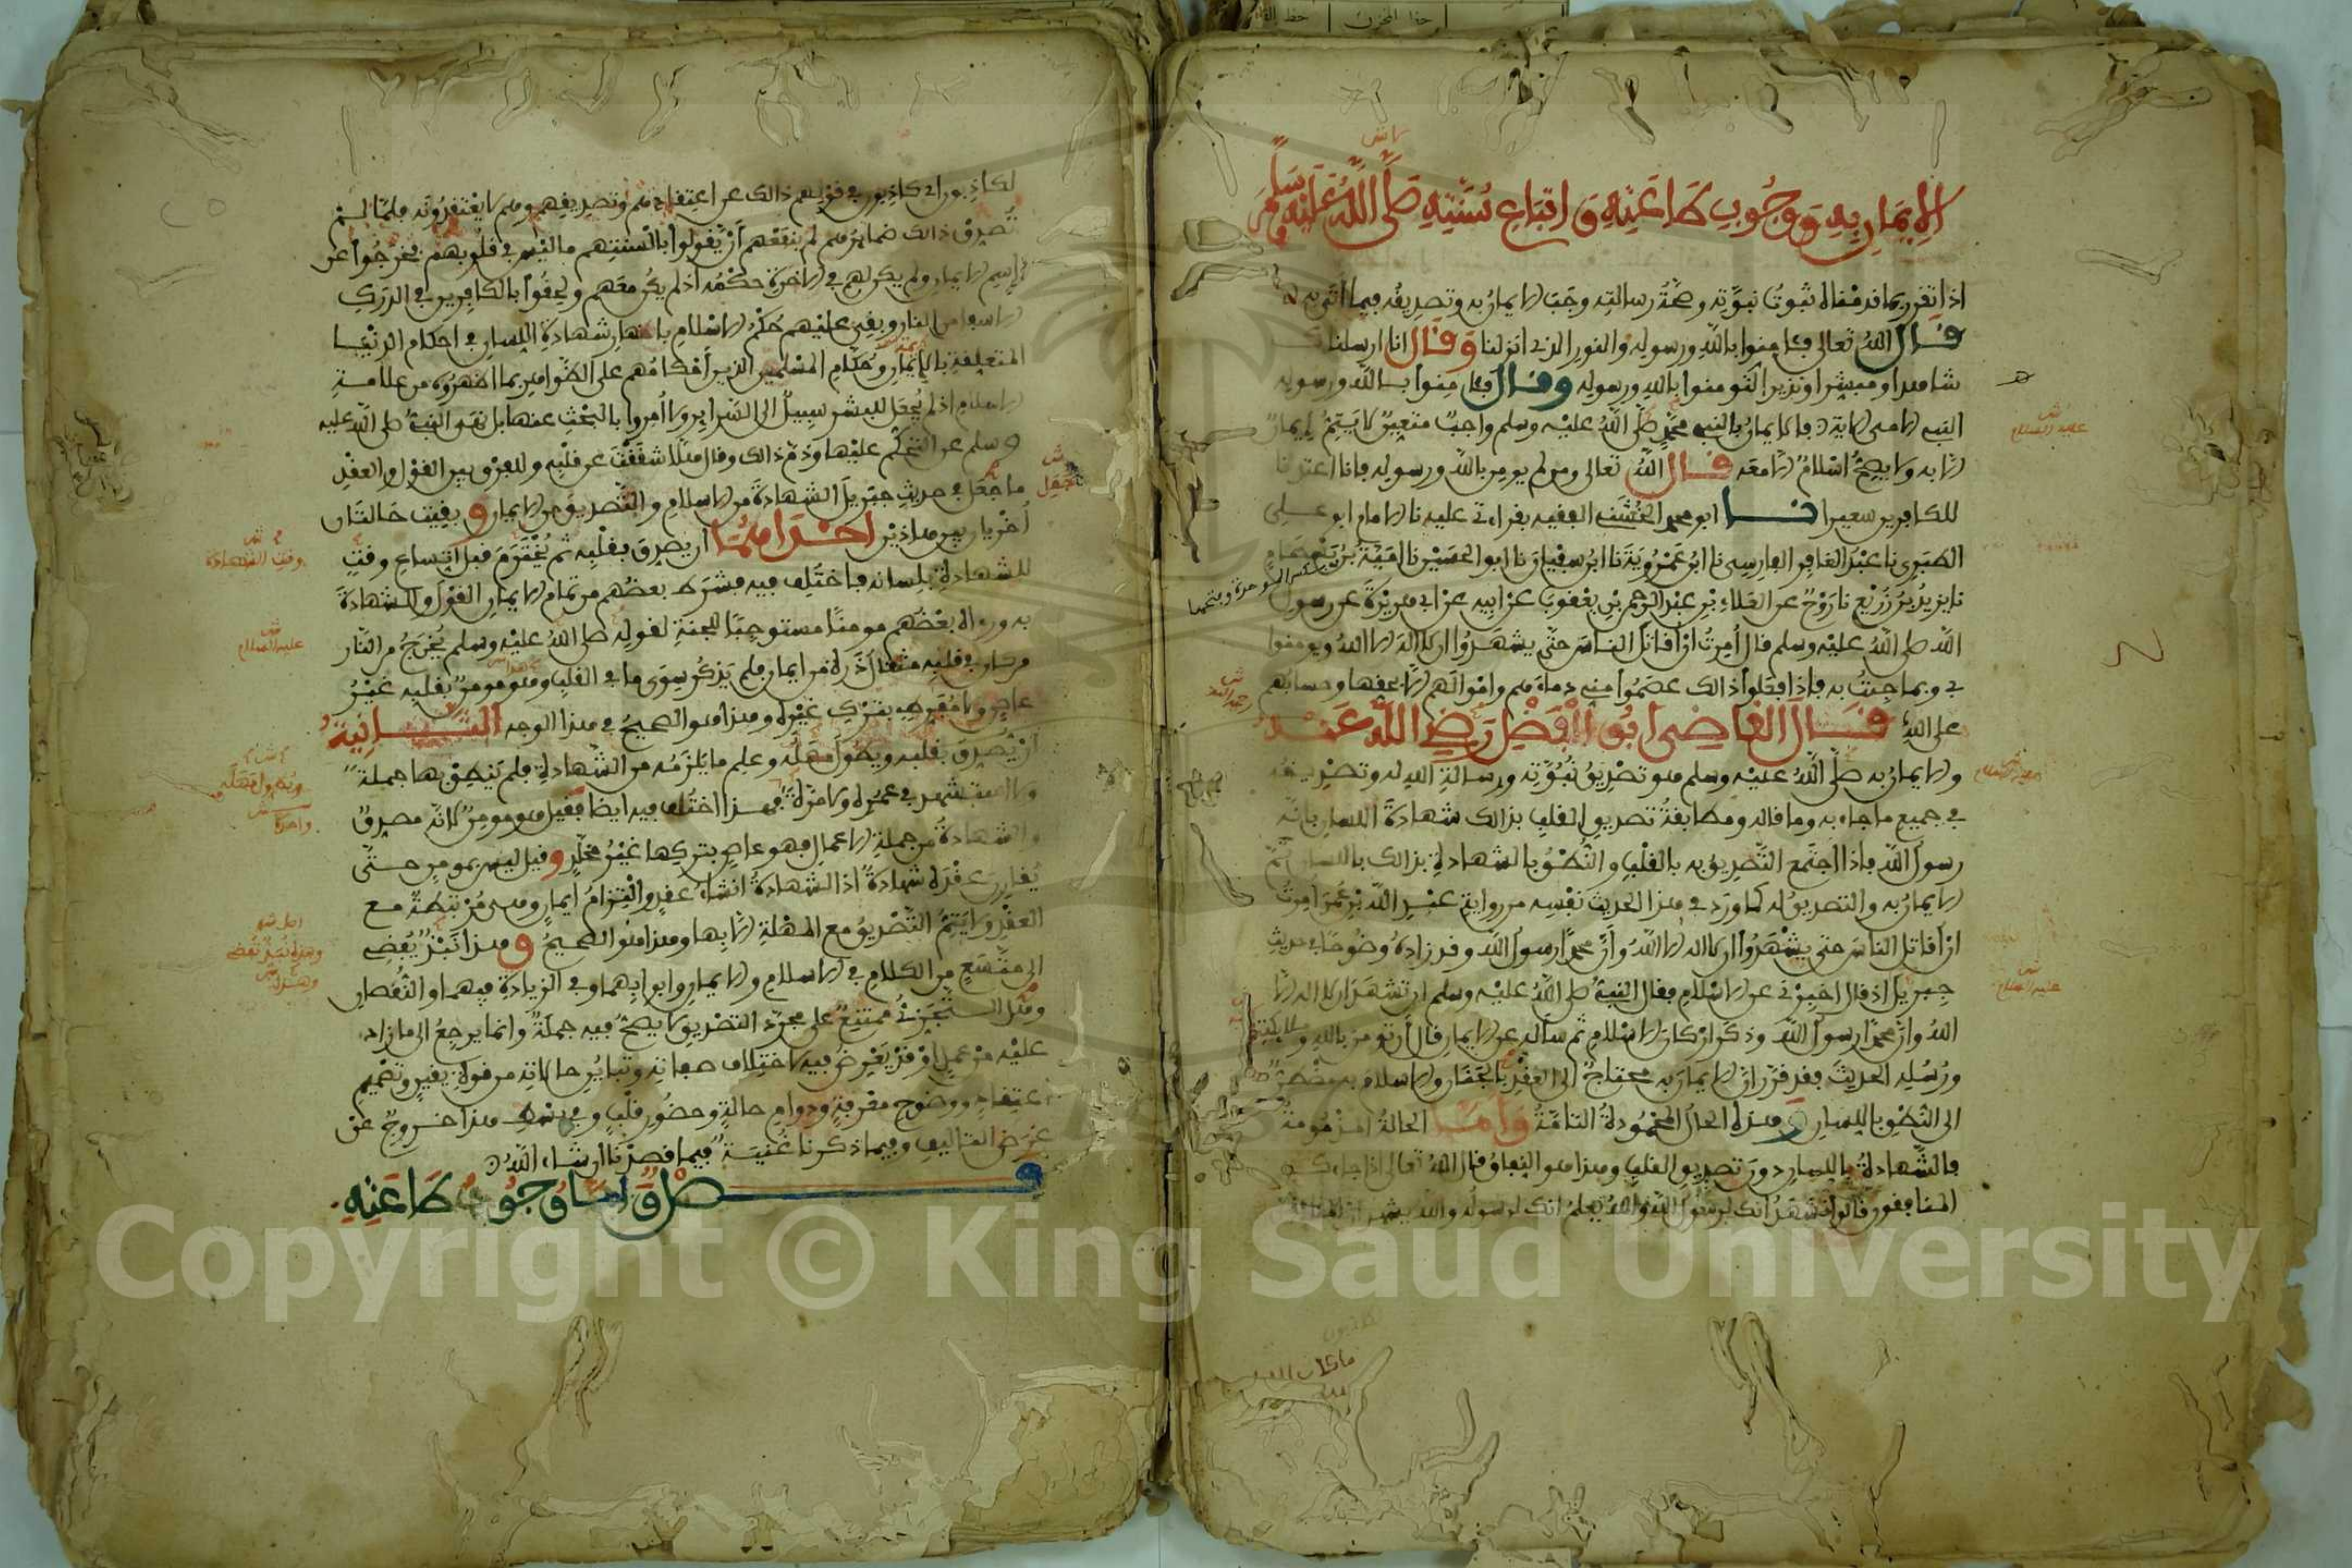 الإيمان به ووجوب طاعته واتباع سنته صلى الله عليه وسلم
اذا تقرر بما قدمناه ثبوت نبوته وصحة رسالته وجب الايمان به وتصديقه فيما اتى به
قال الله تعالى فامنوا بالله ورسوله والنور الذي انزلنا وقال انا ارسلناك
شاهدا ومبشرا ونذيرا لتومنوا بالله ورسوله وقال فامنوا بالله ورسوله
النبي الامي الاية فالايمان بالنبي محمد صلى الله عليه وسلم واجب متعين لا يتم إيمان
الا به ولا يصح اسلام الا معه قال الله تعالى ومن لم يومن بالله ورسوله فانا اعتدنا
للكافرين سعيرا نا ابو محمد الخشني الفقيه بقراءتي عليه نا الامام ابو علي
الطبري نا عبد الغافر الفارسي نا ابن عمرويه نا ابن سفيان نا ابو الحسين نا امية بن بسطام
نا يزيد بن زريع نا روح عن العلاء بن عبد الرحمن بن يعقوب عن ابيه عن ابي هريرة عن رسول
الله صلى الله عليه وسلم قال أمرت أن أقاتل الناس حتى يشهدوا ان لا اله الا الله ويومنوا
بي وبما جئت به فإذا فعلوا ذالك عصموا مني دماءهم وأموالهم الا بحقها وحسابهم
على الله قال القاضي أبو الفضل رضي الله عنه
والايمان به صلى الله عليه وسلم هو تصديق نبوته ورسالة الله له وتصديقه
في جميع ما جاء به وما قاله ومطابقة تصديق القلب بذالك شهادة اللسان بانه
رسول الله فاذا اجتمع التصديق به بالقلب والنطق بالشهادة بذالك باللسان تم
الايمان به والتصديق له كما ورد في هذا الحديث نفسه من رواية عبد الله بن عمر أمرت
أن أقاتل الناس حتى يشهدوا ان لا اله الا الله وأن محمدا رسول الله وقد زاده وضوحا في حديث
جبريل اذ قال اخبرني عن الاسلام فقال النبي صلى الله عليه وسلم ان تشهد ان لا اله الا
الله وأن محمدا رسول الله وذكر أركان الاسلام ثم سأله عن الايمان قال أن تومن بالله وملائكته
ورسله الحديث فقد قرر أن الايمان به محتاج الى العقد بالجنان والاسلام به مضطر
الى النطق باللسان وهذه الحال المحمودة التامة وأما الحالة المذمومة
فالشهادة باللسان دون تصديق القلب وهذا هو النفاق قال الله تعالى اذا جاءك
المنافقون قالوا نشهد انك لرسول الله والله يعلم انك لرسوله والله يشهد ان المنافقين
عليه السلام
رحمه الله
عليه السلام
لكاذبون اي كاذبون في قولهم ذالك عن اعتقادهم وتصديقهم وهم لا يعتقدونه فلما لم
تصدق ذالك ضمائرهم لم ينفعهم أن يقولوا بالسنتهم ما ليس في قلوبهم فخرجوا عن
اسم الايمان ولم يكن لهم في الاخرة حكمه اذ لم يكن معهم ولحقوا بالكافرين في الدرك
الاسفل من النار وبقي عليهم حكم الاسلام باظهار شهادة اللسان في احكام الدنيا
المتعلقة بالأئمة وحكام المسلمين الذين أحكامهم على الظواهر بما اظهروه من علامة
الاسلام اذ لم يجعل للبشر سبيل الى السرائر ولا أمروا بالبحث عنها بل نهى النبي صلى الله عليه
وسلم عن التحكم عليها وذم ذالك وقال هلا شققت عن قلبه وللفرق بين القول والعقد
ما جعل في حديث جبريل الشهادة من الاسلام والتصديق من الايمان وبقيت حالتان
أخريان بين هاذين احداهما ان يصدق بقلبه ثم يخترم قبل اتساع وقت
للشهادة بلسانه فاختلف فيه فشرط بعضهم من تمام الايمان القول والشهادة
به وراه بعضهم مومنا مستوجبا للجنة لقوله صلى الله عليه وسلم يخرج من النار
من كان في قلبه مثقال ذرة من ايمان فلم يذكر سوى ما في القلب وهو مومن بقلبه غير
عاص ولا مفرط بترك غيره وهذا هو الصحيح في هذا الوجه الثانية
أن يصدق بقلبه ويطول مهله وعلم ما يلزمه من الشهادة فلم ينطق بها جملة
ولا استشهد في عمره ولا مرة فهذا اختلف فيه ايضا فقيل هو مومن لانه مصدق
والشهادة من جملة الاعمال فهو عاص بتركها غير مخلد وقيل ليس بمومن حتى
يقارن عقده شهادة اذ الشهادة انشاء عقد والتزام ايمان وهي مرتبطة مع
العقد ولا يتم التصديق مع المهلة الا بها وهذا هو الصحيح وهذا نبذ يفضي
الى متسع من الكلام في الاسلام والايمان وابوابهما وفي الزيادة فيهما والنقصان
وهل التجزي ممتنع على مجرد التصديق لا يصح فيه جملة وانما يرجع الى ما زاد
عليه من عمل أو قد يعرض فيه لاختلاف صفاته وتباين حالاته من قوة يقين وتصميم
اعتقاد ووضوح معرفة ودوام حالة وحضور قلب وفي بسط هذا خروج عن
غرض التاليف وفيما ذكرنا غنية فيما قصدنا ان شاء الله
فصل وأما وجوب طاعته
جعل
وقت الشهادة
عليه السلام
Copyright © King Saud University